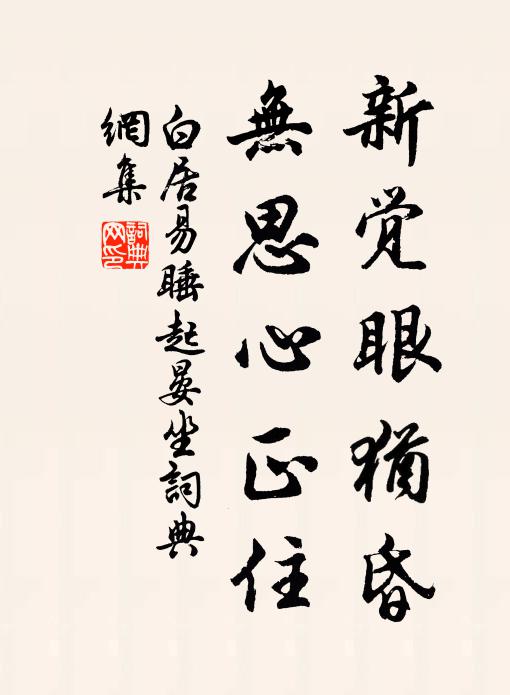 新覚眼猶昏
無思心正住
白居易睡起晏坐詞典
網集
詞典
网印